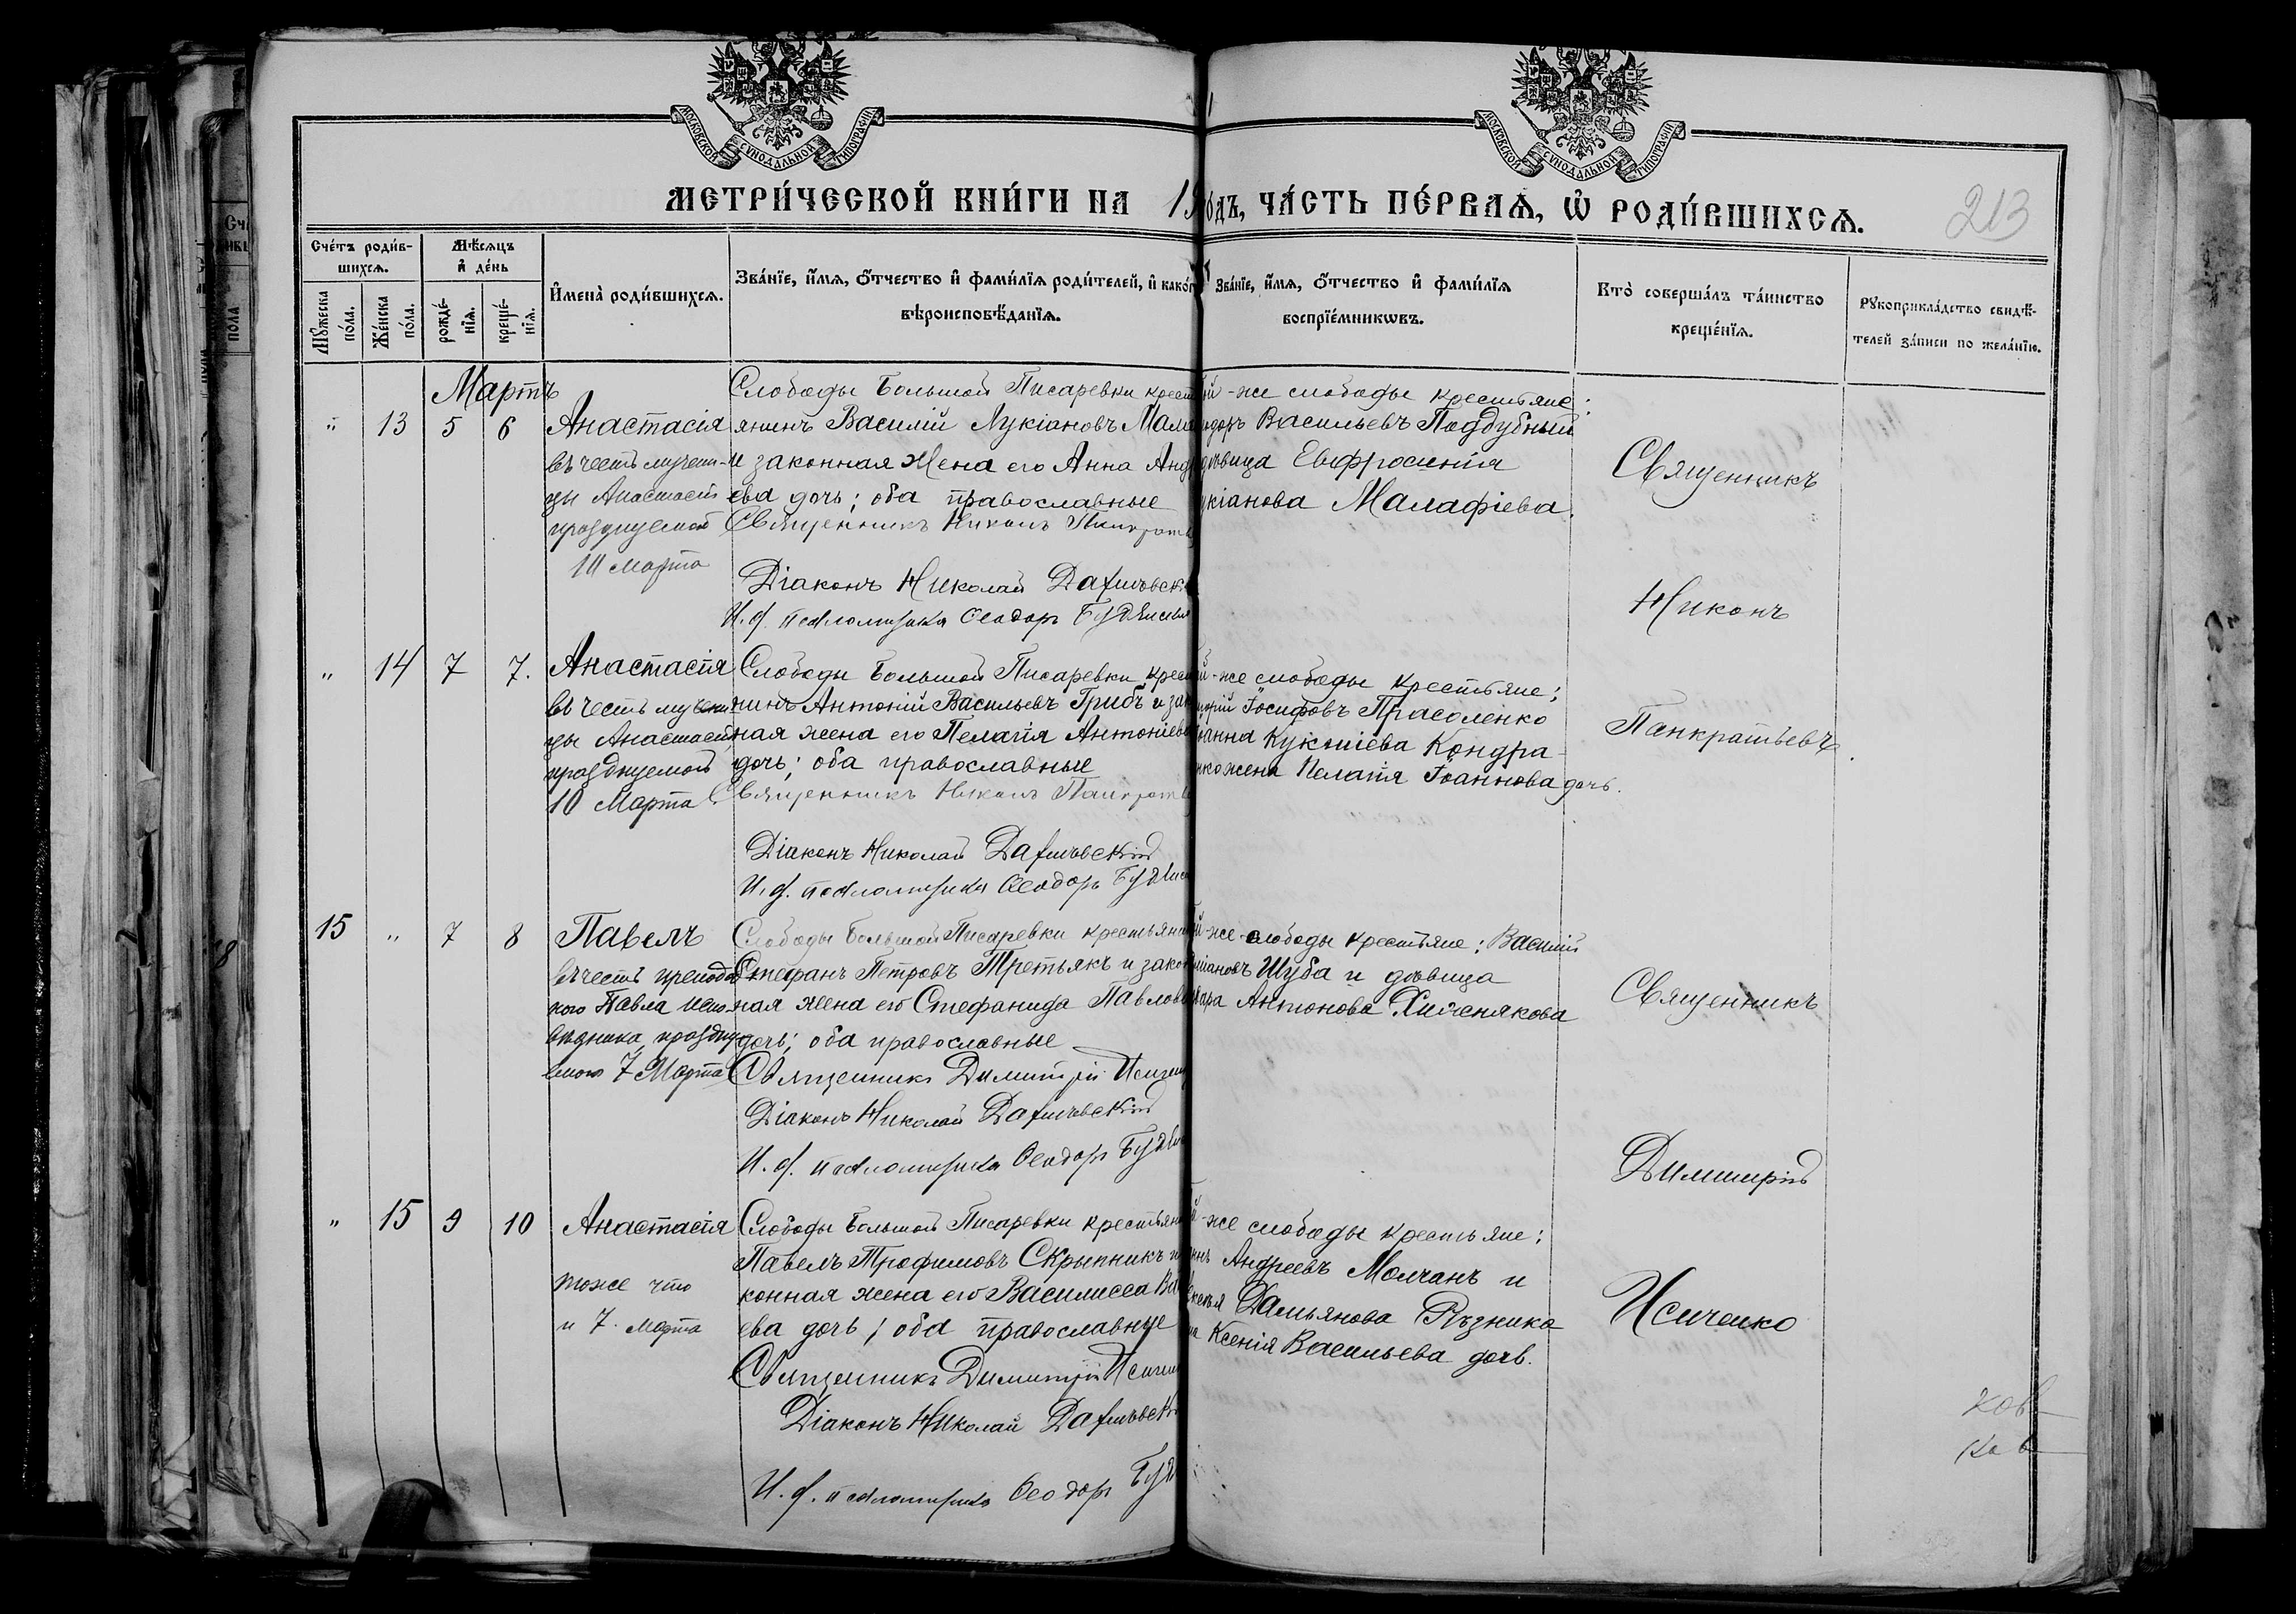 МОСКОВСКОЙ СѴНОДАЛЬНОЙ ТИПОГРАФІИ
МОСКОВСКОЙ СѴНОДАЛЬНОЙ ТИПОГРАФІИ
МЕТРИ́ЧЕСКОЙ КНИ́ГИ НА 19
ОДЪ, ЧА́СТЬ ПЕ́РВАѦ, Ѡ҆ РОДИ́ВШИХСѦ.
213
Сче́тъ роди́в-
шихсѧ.
Мѣ́сѧцъ
и҆ де́нь
Мꙋ́жеска по́ла.
Же́нска по́ла.
рожде́-
нїѧ.
креще́-
нїѧ.
И҆мена̀ роди́вшихсѧ.
Зва́нїе, и҆́мѧ, ѻ҆́тчество и҆ фами́лїѧ роди́телей, и҆ како́г
вѣроисповѣ́данїѧ.
Зва́нїе, и҆́мѧ, ѻ҆́тчество и҆ фами́лїѧ
воспрїе́мникѡвъ.
Кто̀ соверша́лъ та́инство
креще́нїѧ.
Рꙋкоприкла́дство свидѣ́-
телей за́писи по жела́нїю.
Мартъ
" 13 5 6 Анастасія
въ честь мучени-
цы Анастасіи
празднуемой
10 марта
Слободы Большой Писаревки крест
янинъ Василій Лукіановъ Мала
и законная жена его Анна Анд
ева дочь; оба православные
Священникъ Никонъ Панкратье
Діаконъ Николай
И. д. псаломщика Ѳеодоръ
й-же слободы крестьяне:
одоръ Васильевъ Поддубный
дѣвица Евфросинія
укіанова Малафіева.
Священникъ
Никонъ
Панкратьевъ.
" 14 7 7. Анастасія
въ честь мучени
цы Анастасіи,
празднуемой
10 Марта
Слободы Большой Писаревки крест
нинъ Антоній Васильевъ Грибъ и зак
ная жена его Пелагія Антоніева
дочь; оба православные
Священникъ Никонъ Панкрат
Діаконъ Николай
И. д. псаломщика Ѳеодоръ
й-же слободы крестьяне;
Іосифовъ Прасоленко
Кондра-
нко жена Пелагія Іоаннова дочь.
15 " 7 8 Павелъ
въ честь преподоб
наго Павла испо-
вѣдника, праздну
емаго 7 Марта
Слободы Большой Писаревки крестьянин
Стефанъ Петровъ Третьякъ и закон
ная жена его Стефанида Павлов
дочь; оба православные
Священникъ Димитрій Исиченк
Діаконъ Николай
И. д. псаломщика Ѳеодоръ
й-же слободы крестьяне: Василій
Шуба и дѣвица
вара Антонова Хиженякова
Священникъ
Димитрій
Исиченко
" 15 9 10 Анастасія
тоже что
и 7. марта
Слободы Большой Писаревки крестьян
Павелъ Трофимовъ Скрыпникъ и
конная жена его Василисса Ва
ева дочь; оба православные
Священникъ Димитрій Исичен
Діаконъ Николай
И. д. псаломщика Ѳеодоръ
й-же слободы крестьяне:
Андреевъ Молчанъ и
Дамьянова Рѣзника
Ксенія Васильева дочь.